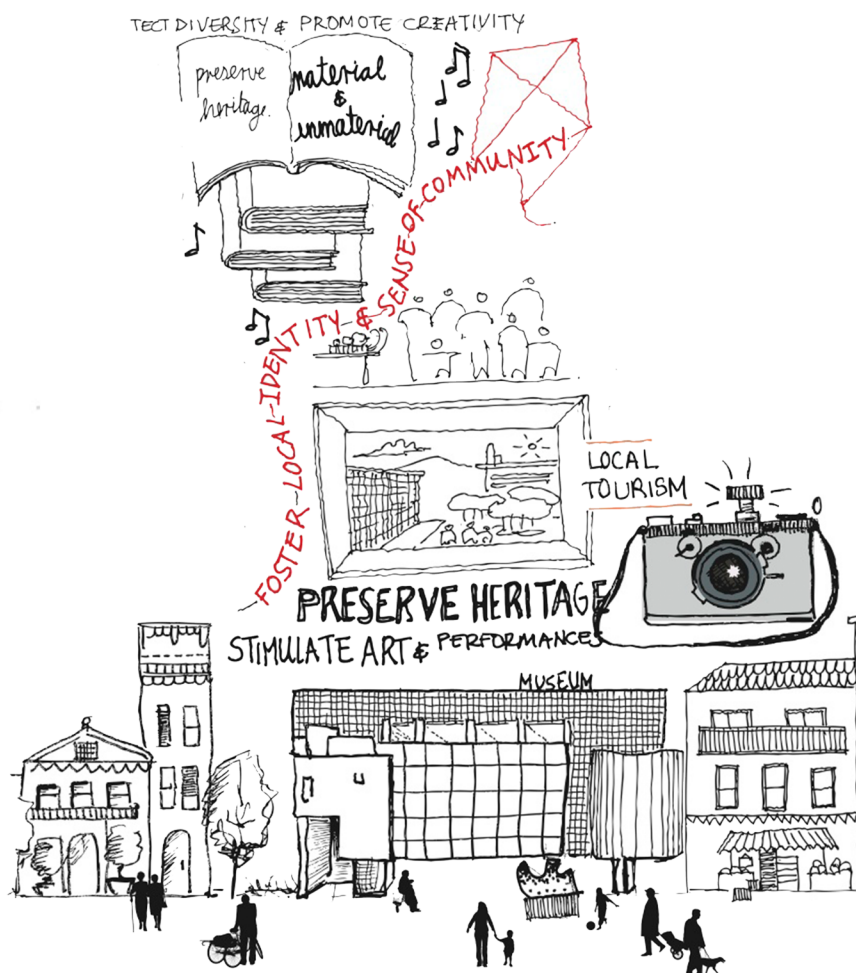 TECT DIVERSITY & PROMOTE CREATIVITY
preserve
heritage.
material
&
unmaterial
FOSTER-LOCAL-IDENTITY-&-SENSE-OF-COMMUNITY-
LOCAL
TOURISM
PRESERVE HERITAGE
STIMULATE ART & PERFORMANCES
MUSEUM